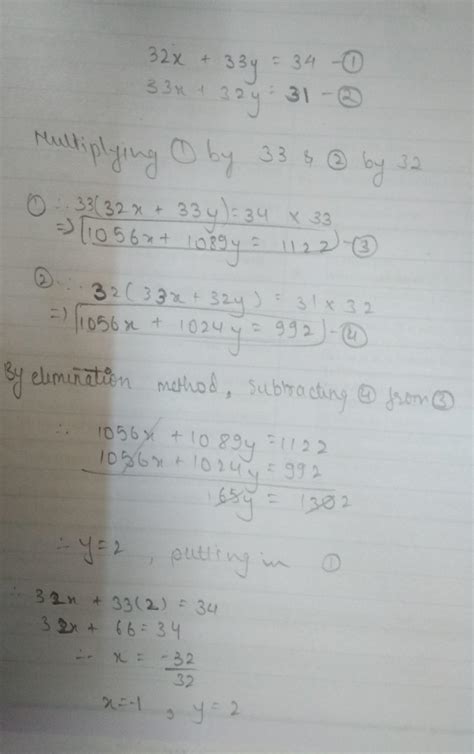 32x + 33y = 34 -①
33x + 32y = 31 -②
Multiplying ① by 33 & ② by 32
① ∴ 33(32x + 33y) = 34 x 33
=> 1056x + 1089y = 1122 -③
② ∴ 32(33x + 32y) = 31 x 32
=> 1056x + 1024y = 992 -④
By elimination method, subtracting ④ from ③
∴ 1056x + 1089y = 1122
1056x + 1024y = 992
65y = 130 2
∴ y = 2, putting in ①
∴ 32x + 33(2) = 34
32x + 66 = 34
∴ x = -32/32
x = -1, y = 2